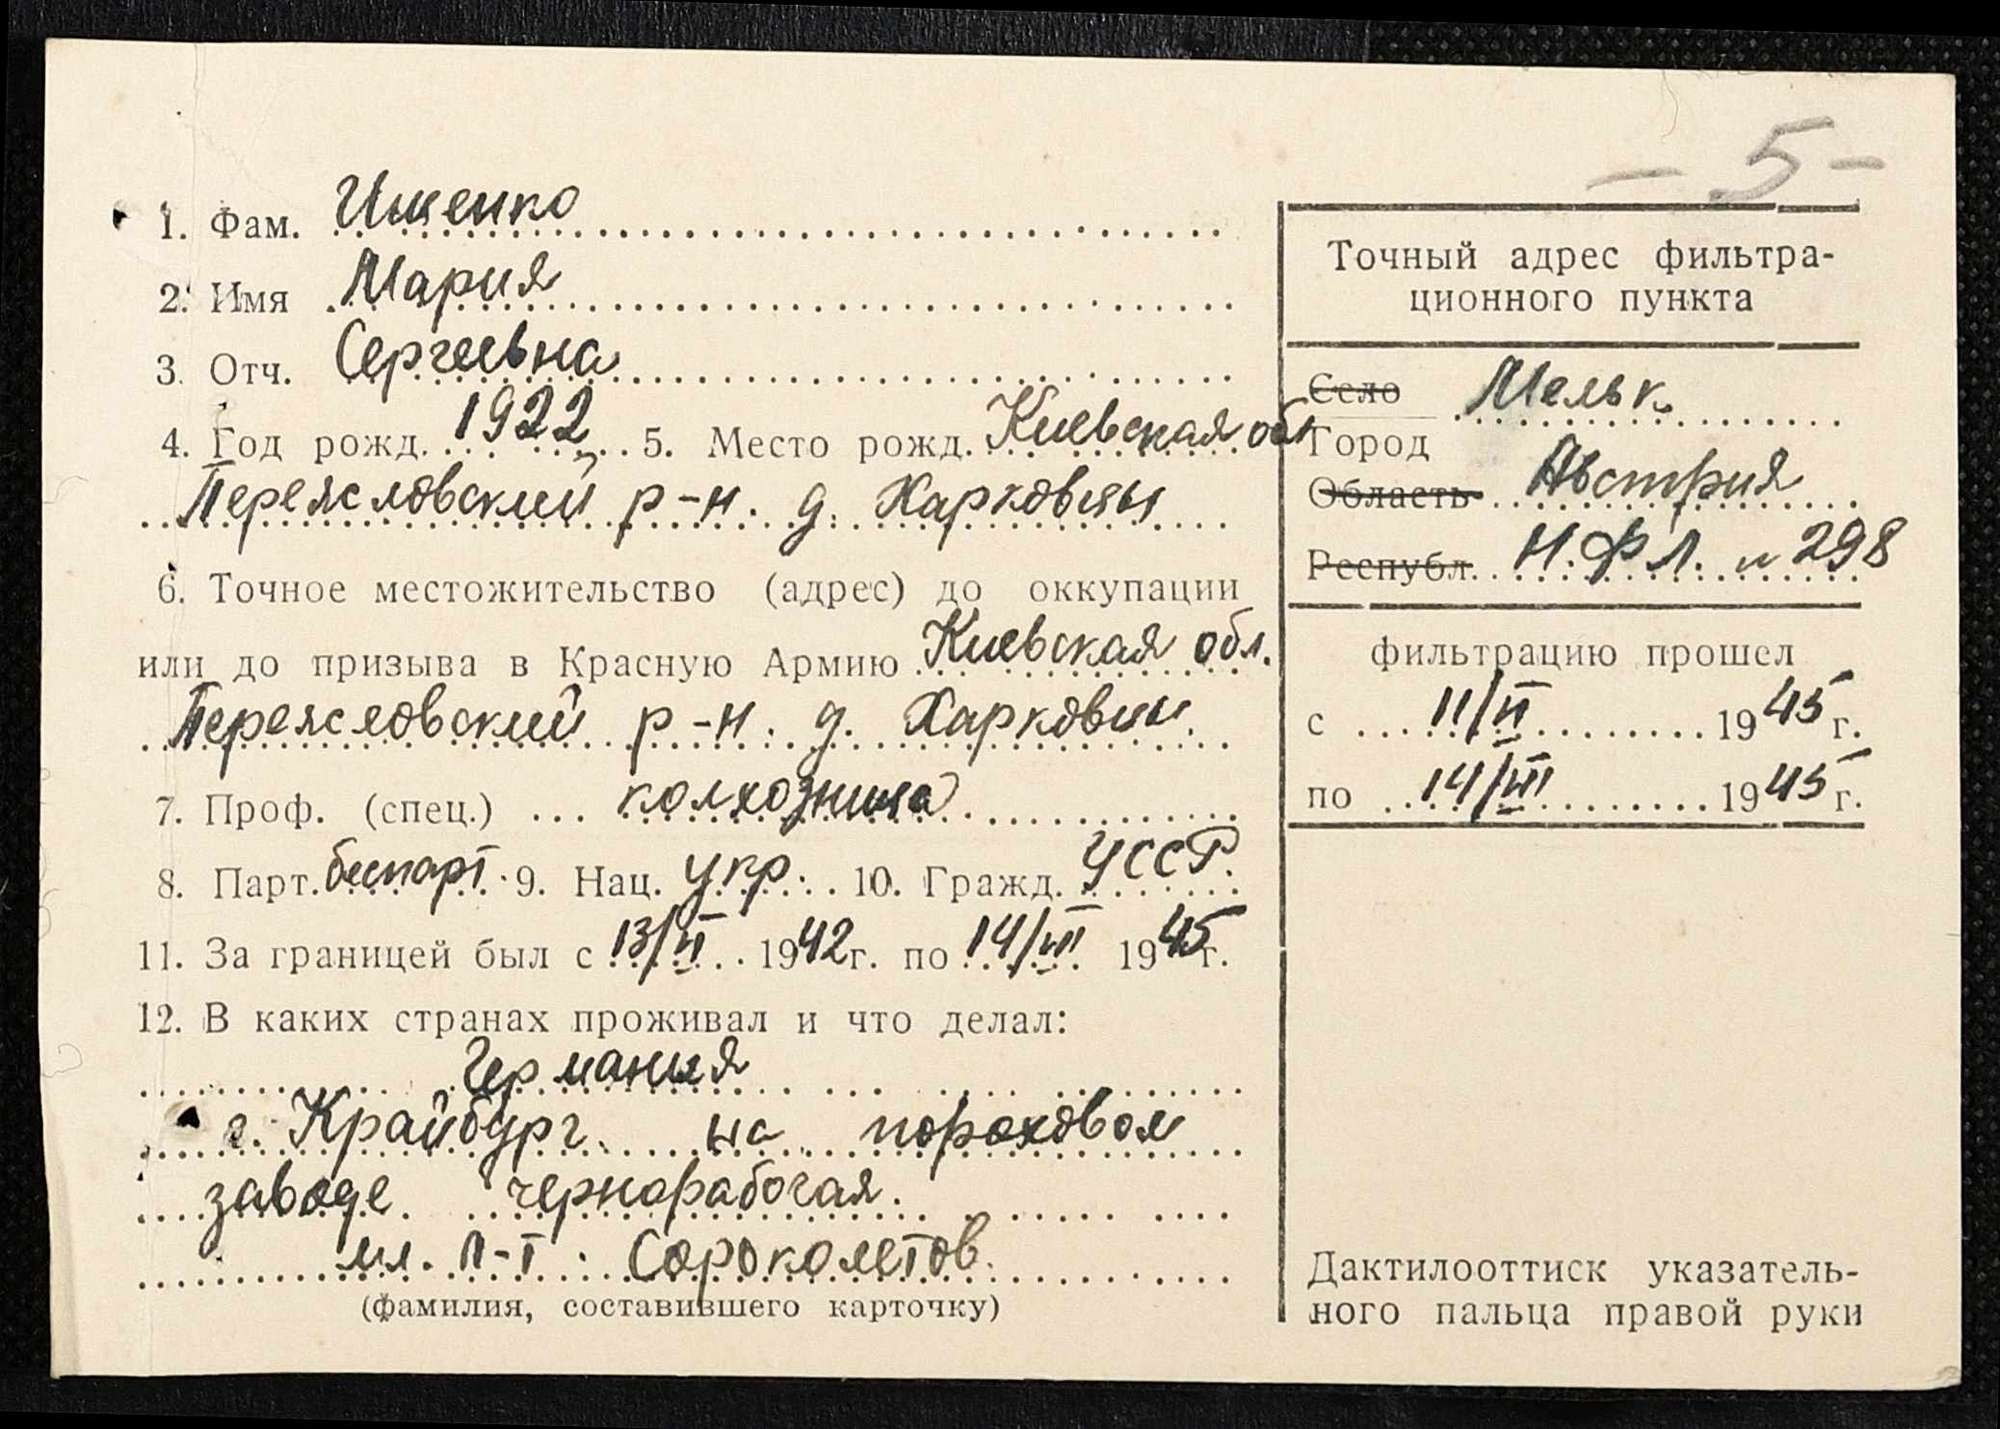 - 5 -
1. Фам. Ищенко
2. Имя Мария
3. Отч. Сергеевна
4. Год рожд. 1922 5. Место рожд. Киевская обл
Переясловский р-н. д. Харковцы
6. Точное местожительство (адрес) до оккупации
или до призыва в Красную Армию Киевская обл.
Переясловский р-н. д. Харковцы
7. Проф. (спец.) колхозница
8. Парт. беспарт. 9. Нац. укр. 10. Гражд. УССР
11. За границей был с 13/VI 1942 г. по 14/VIII 1945 г.
12. В каких странах проживал и что делал:
Германия
г. Крайбург. на пороховом
заводе чернорабочая.
мл. л-т. Сороколетов
(фамилия, составившего карточку)
Точный адрес фильтра-
ционного пункта
Село Мельк
Город
Область Австрия
Республ. Н.Ф.Л. № 298
фильтрацию прошел
с 11/VI 1945 г.
по 14/VIII 1945 г.
Дактилооттиск указатель-
ного пальца правой руки